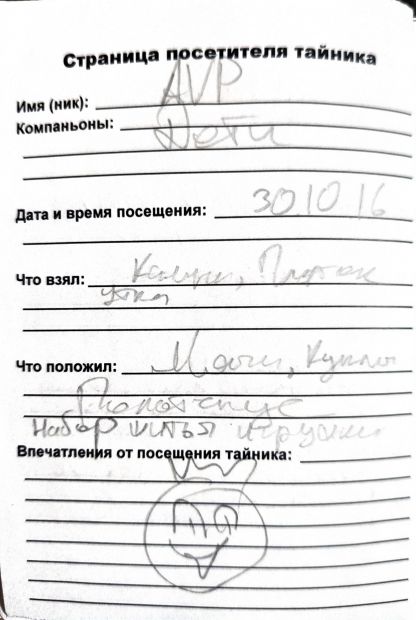 Страница посетителя тайника
Имя (ник): AVP
Компаньоны: Дети
Дата и время посещения: 30.10.16
Что взял: Платок
утка
Что положил: Мячи, Куклы
Набор шитья игрушки
Впечатления от посещения тайника: